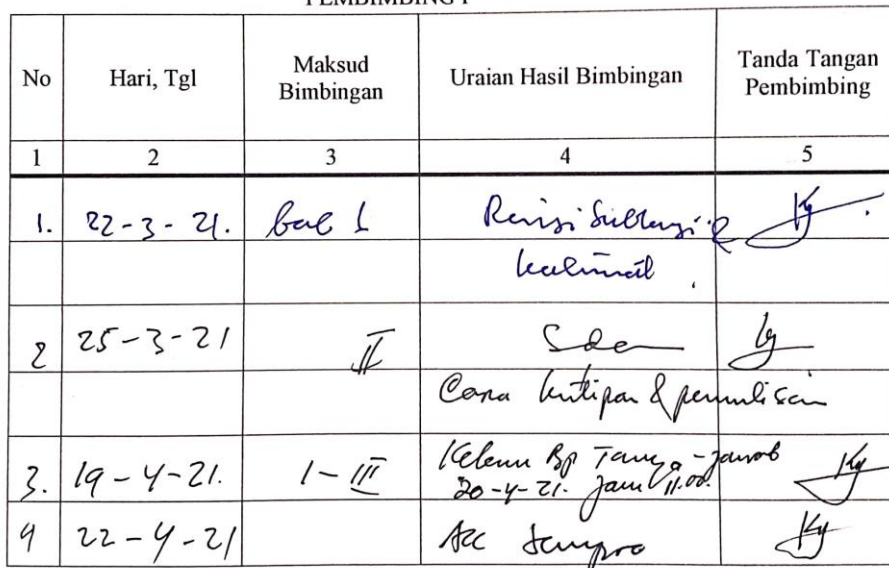 PEMBIMBING I
No Hari, Tgl Maksud Bimbingan Uraian Hasil Bimbingan Tanda Tangan Pembimbing
1 2 3 4 5
1. 22-3-21. bab I Revisi &
kalimat
2 25-3-21 II Sda
Cara kutipan & penulisan
3. 19-4-21. I-III Bp Tanya-jawab
20-4-21. jam 11.00.
4 22-4-21 Acc Sempro